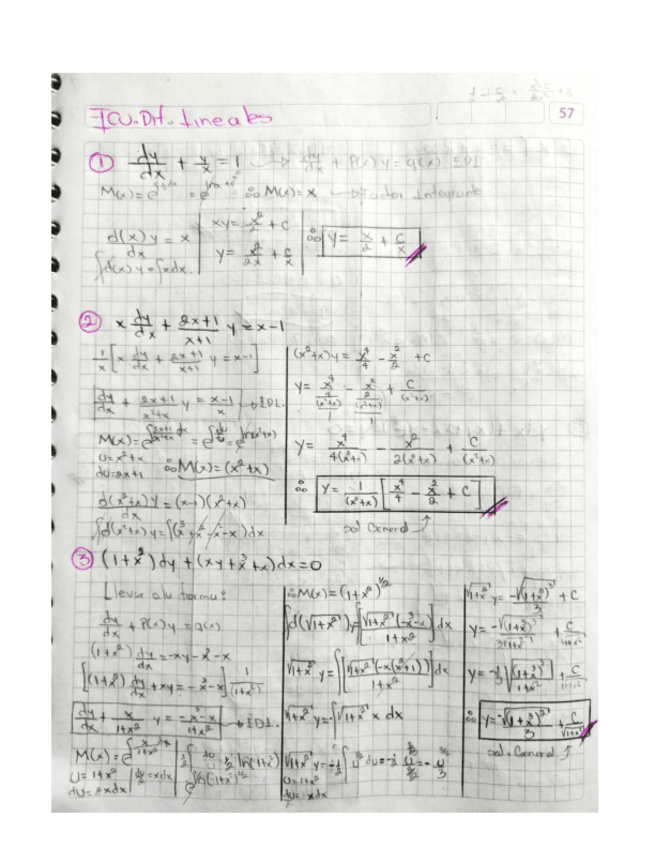 Ecu. Dif. Lineales
57
① dy/dx + y/x = 1 → dy/dx + P(x) y = q(x) EDL
M(x) = e = e ∴ M(x) = x → Factor Integrante
d(x) y/dx = x
∫d(x) y = ∫x dx
xy = x²/2 + C
y = x²/2x + C/x
∴ y = x/2 + C/x
② x dy/dx + 2x+1/x+1 y = x-1
1/x [x dy/dx + 2x+1/x+1 y = x-1]
dy/dx + 2x+1/x²+x y = x-1/x → EDL.
M(x) = e^∫2x+1/x²+x dx = e^∫du/u = e^ln(x²+x)
u = x²+x
du = 2x+1 ∴ M(x) = (x²+x)
d(x²+x) y/dx = (x-1)(x²+x)
∫d(x²+x) y = ∫(x³+x²-x²-x) dx
(x²+x) y = x⁴/4 - x²/2 + C
y = x⁴/4/(x²+x) - x²/2/(x²+x) + C/(x²+x)
y = x⁴/4(x²+x) - x²/2(x²+x) + C/(x²+x)
∴ y = 1/(x²+x) [x⁴/4 - x²/2 + C]
sol General
③ (1+x²) dy + (xy+x³+x) dx = 0
Llevar a la forma:
dy/dx + P(x) y = q(x)
(1+x²) dy/dx = -xy-x³-x
[(1+x²) dy/dx + xy = -x³-x] 1/(1+x²)
dy/dx + x/1+x² y = -x³-x/1+x² → EDL.
M(x) = e^∫x/1+x² dx
u = 1+x²
du = 2xdx
du/2 = xdx
1/2 ∫ du/u = 1/2 ln(1+x²)
e^ln(1+x²)^1/2
∴ M(x) = (1+x²)^1/2
∫d(√1+x²) y = ∫[√1+x² (-x³-x)/1+x²] dx
√1+x² y = ∫[√1+x² (-x(x²+1))/1+x²] dx
√1+x² y = -∫√1+x² x dx
√1+x² y = -1/2 ∫ u^1/2 du = -1/2 u^3/2/3/2 = -u^3/2/3
u = 1+x²
du/2 = xdx
√1+x² y = -√(1+x²)³/3 + C
y = -√(1+x²)³/3√1+x² + C/√1+x²
y = -1/3 √(1+x²)³/1+x² + C/√1+x²
∴ y = -√(1+x²)²/3 + C/√1+x²
sol. General